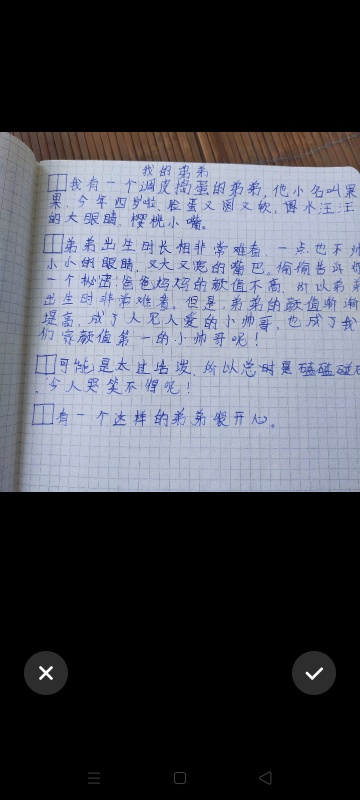 我的弟弟
我有一个调皮捣蛋的弟弟，他小名叫果
果，今年四岁啦，脸蛋又圆又软，一水汪汪
的大眼睛，樱桃小嘴。
弟弟出生时长相非常难看，一点也不帅
小小的眼睛，又大又宽的嘴巴。偷偷告诉
一个秘密：爸爸妈妈的颜值不高，所以弟弟
出生时非常难看。但是，弟弟的颜值渐渐
提高，成了人见人爱的小帅哥，也成了我
们家颜值第一的小帅哥呢！
可能是太过活泼，所以总时是磕磕碰碰
，令人哭笑不得呢！
有一个这样的弟弟很开心。